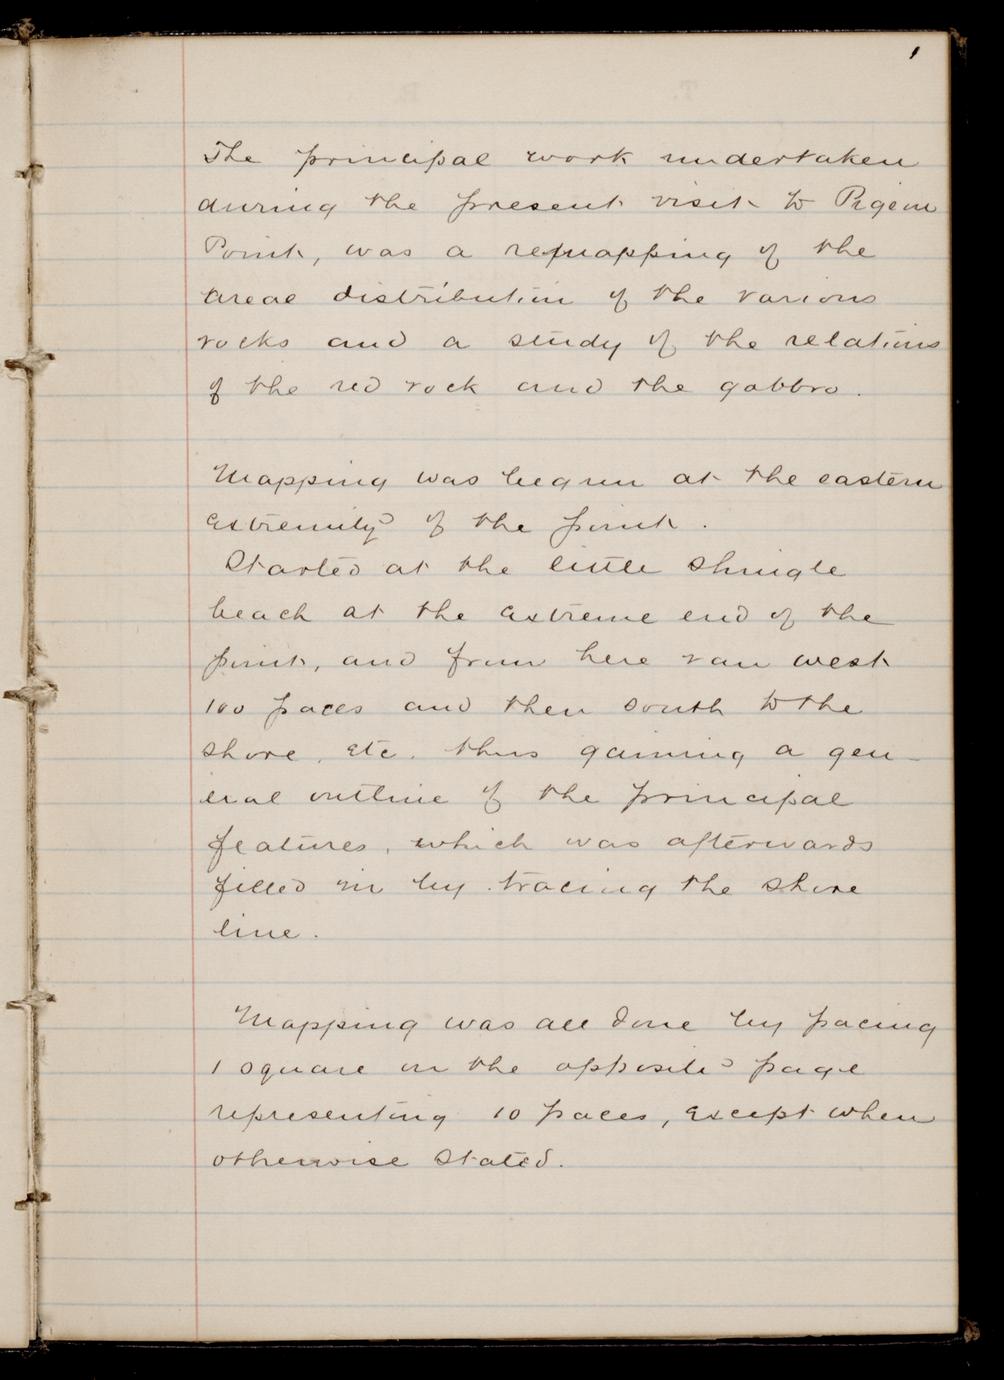 1
The principal work undertaken
during the present visit to Pigeon
Point, was a remapping of the
areal distribution of the various
rocks and a study of the relations
of the red rock and the gabbro.
Mapping was begun at the eastern
extremity of the point.
Started at the little shingle
beach at the extreme end of the
point, and from here ran west
100 paces and then south to the
shore, etc. thus gaining a gen-
eral outline of the principal
features, which was afterwards
filled in by tracing the shore
line.
Mapping was all done by pacing
1 square on the opposite page
representing 10 paces, except when
otherwise stated.